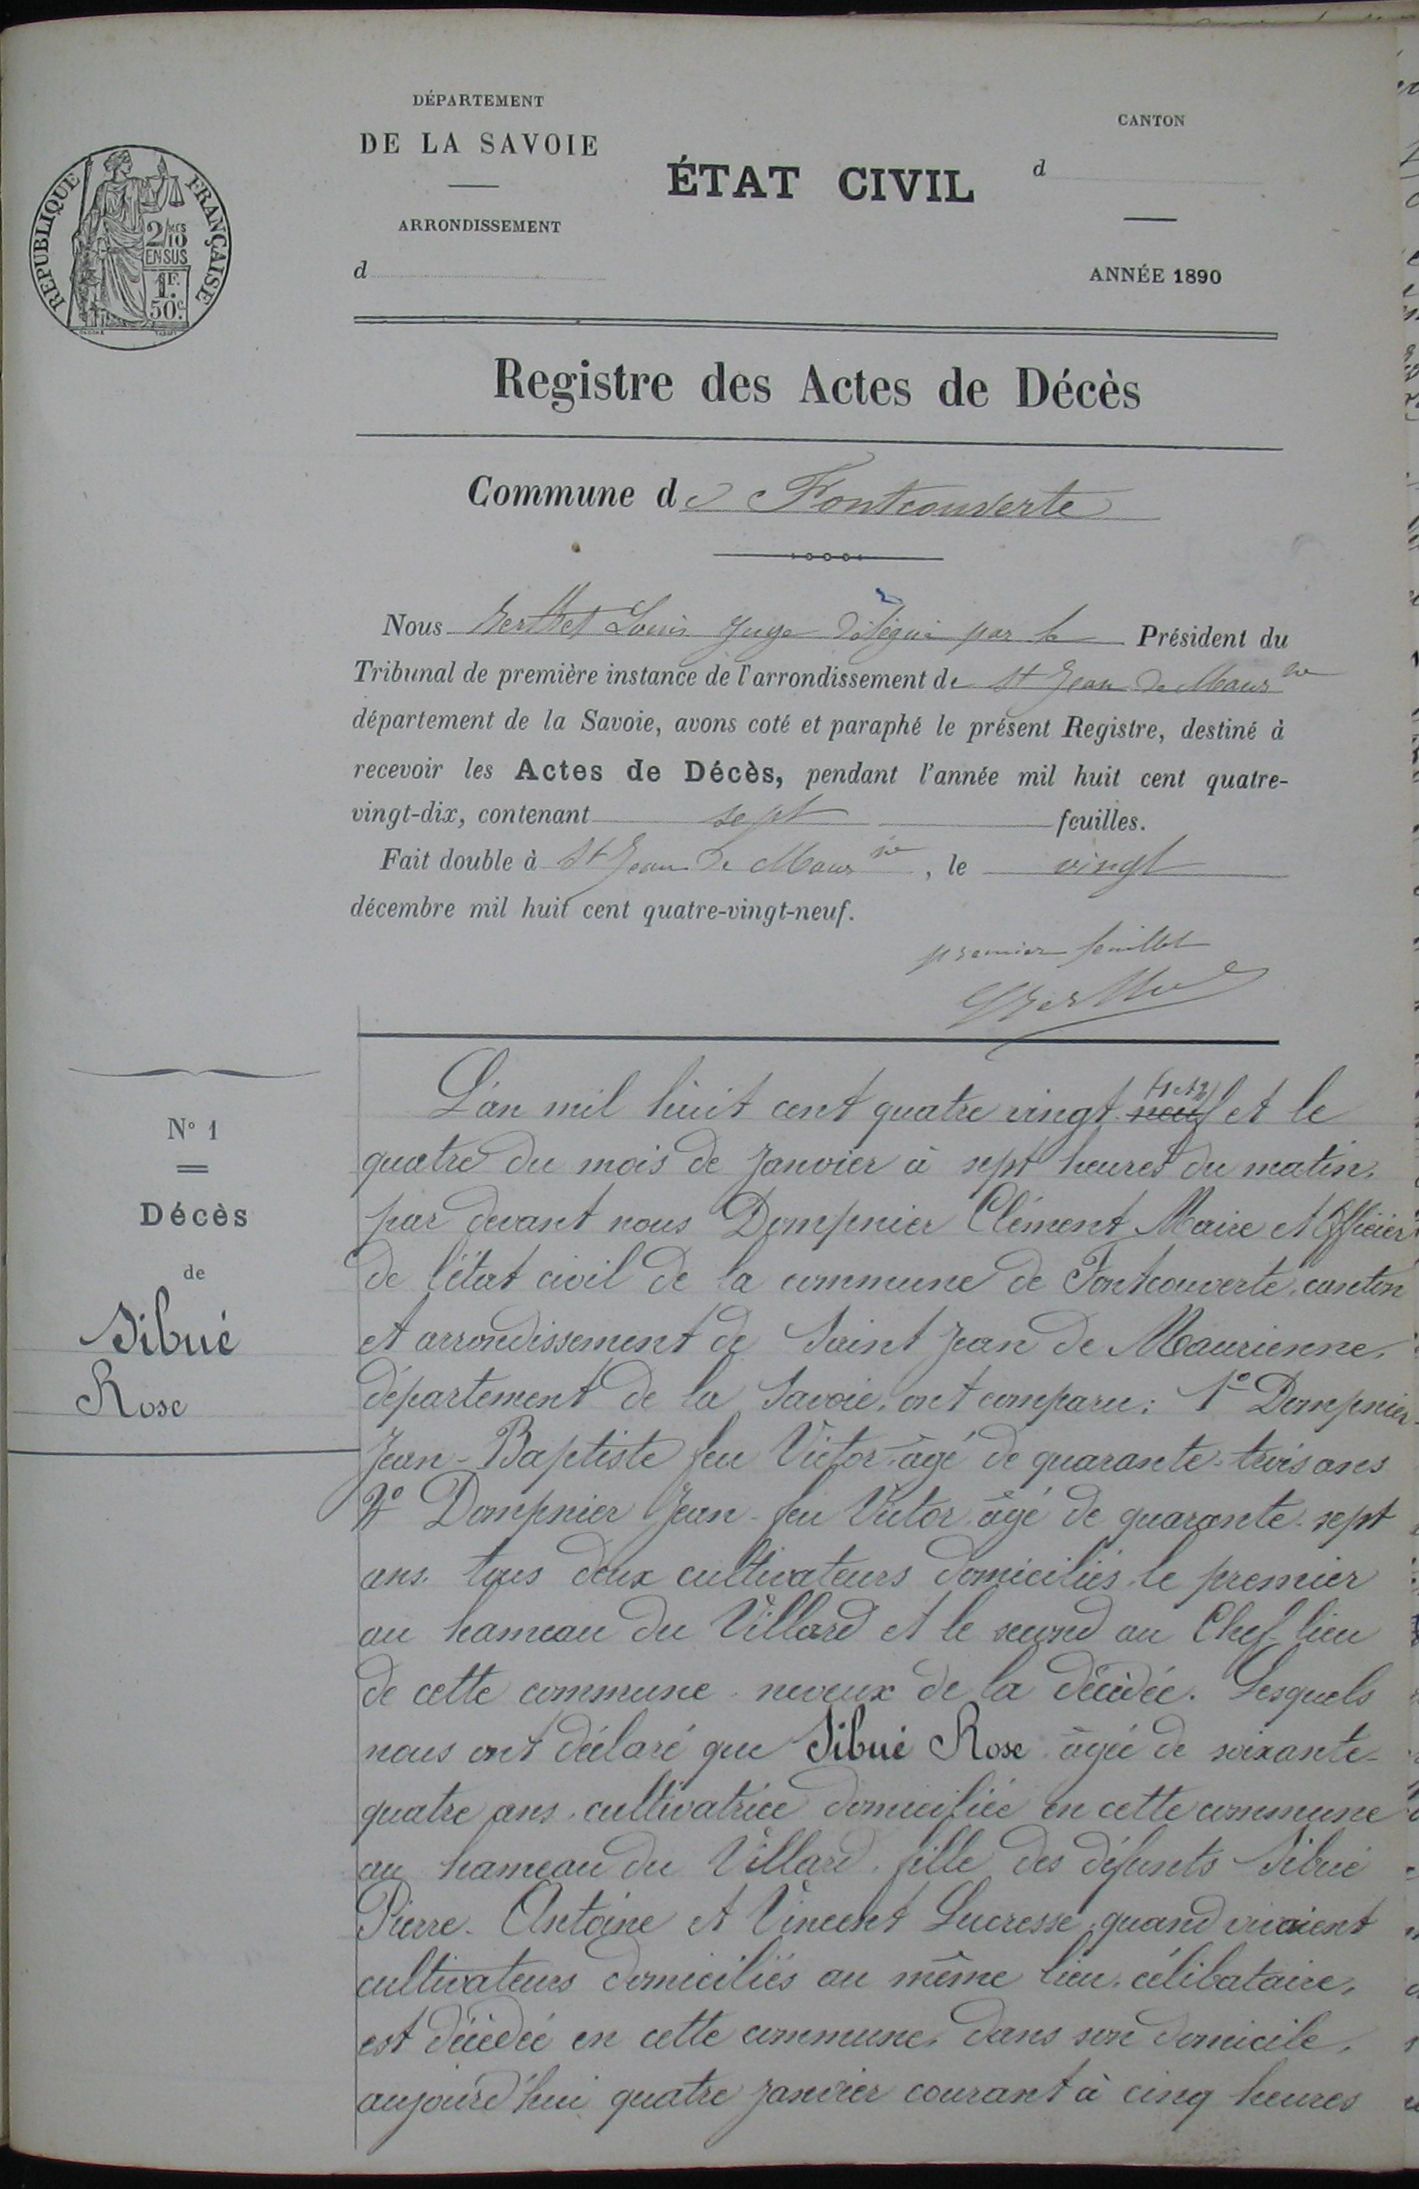 DÉPARTEMENT
DE LA SAVOIE
ARRONDISSEMENT
d
ÉTAT CIVIL
CANTON
d
ANNÉE 1890
RÉPUBLIQUE FRANÇAISE
2/10
EN SUS
1F.
50c.
Registre des Actes de Décès
Commune de Fontcouverte
Nous Berthet Louis Juge délégué par le Président du
Tribunal de première instance de l'arrondissement de St Jean de Maurne
département de la Savoie, avons coté et paraphé le présent Registre, destiné à
recevoir les Actes de Décès, pendant l'année mil huit cent quatre-
vingt-dix, contenant sept feuilles.
Fait double à St Jean de Maurne, le vingt
décembre mil huit cent quatre-vingt-neuf.
premier feuillet
Berthet
N° 1
Décès
de
Sibué
Rose
L'an mil huit cent quatre vingt neuf et le
quatre du mois de Janvier à sept heures du matin,
par devant nous Dompnier Clément Maire et Officier
de l'état civil de la commune de Fontcouverte, canton
et arrondissement de Saint Jean de Maurienne,
département de la Savoie, ont comparu: 1° Dompnier
Jean-Baptiste feu Victor, âgé de quarante-trois ans
2° Dompnier Jean feu Victor âgé de quarante-sept
ans, tous deux cultivateurs domiciliés le premier
au hameau du Villard et le second au Chef-lieu
de cette commune neveux de la décédée. Lesquels
nous ont déclaré que Sibué Rose âgée de soixante-
quatre ans, cultivatrice domiciliée en cette commune
au hameau du Villard, fille des défunts Sibué
Pierre-Antoine et Vincent Lucresse, quand vivaient
cultivateurs domiciliés au même lieu, célibataire,
est décédée en cette commune, dans son domicile,
aujourd'hui quatre janvier courant à cinq heures